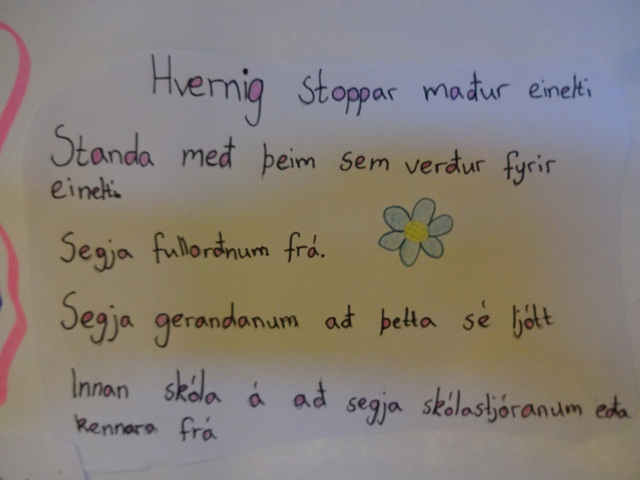 Hvernig stoppar maður einelti
Standa með þeim sem verður fyrir
einelti.
Segja fullorðnum frá.
Segja gerandanum að þetta sé ljótt
Innan skóla á að segja skólastjóranum eða
kennara frá